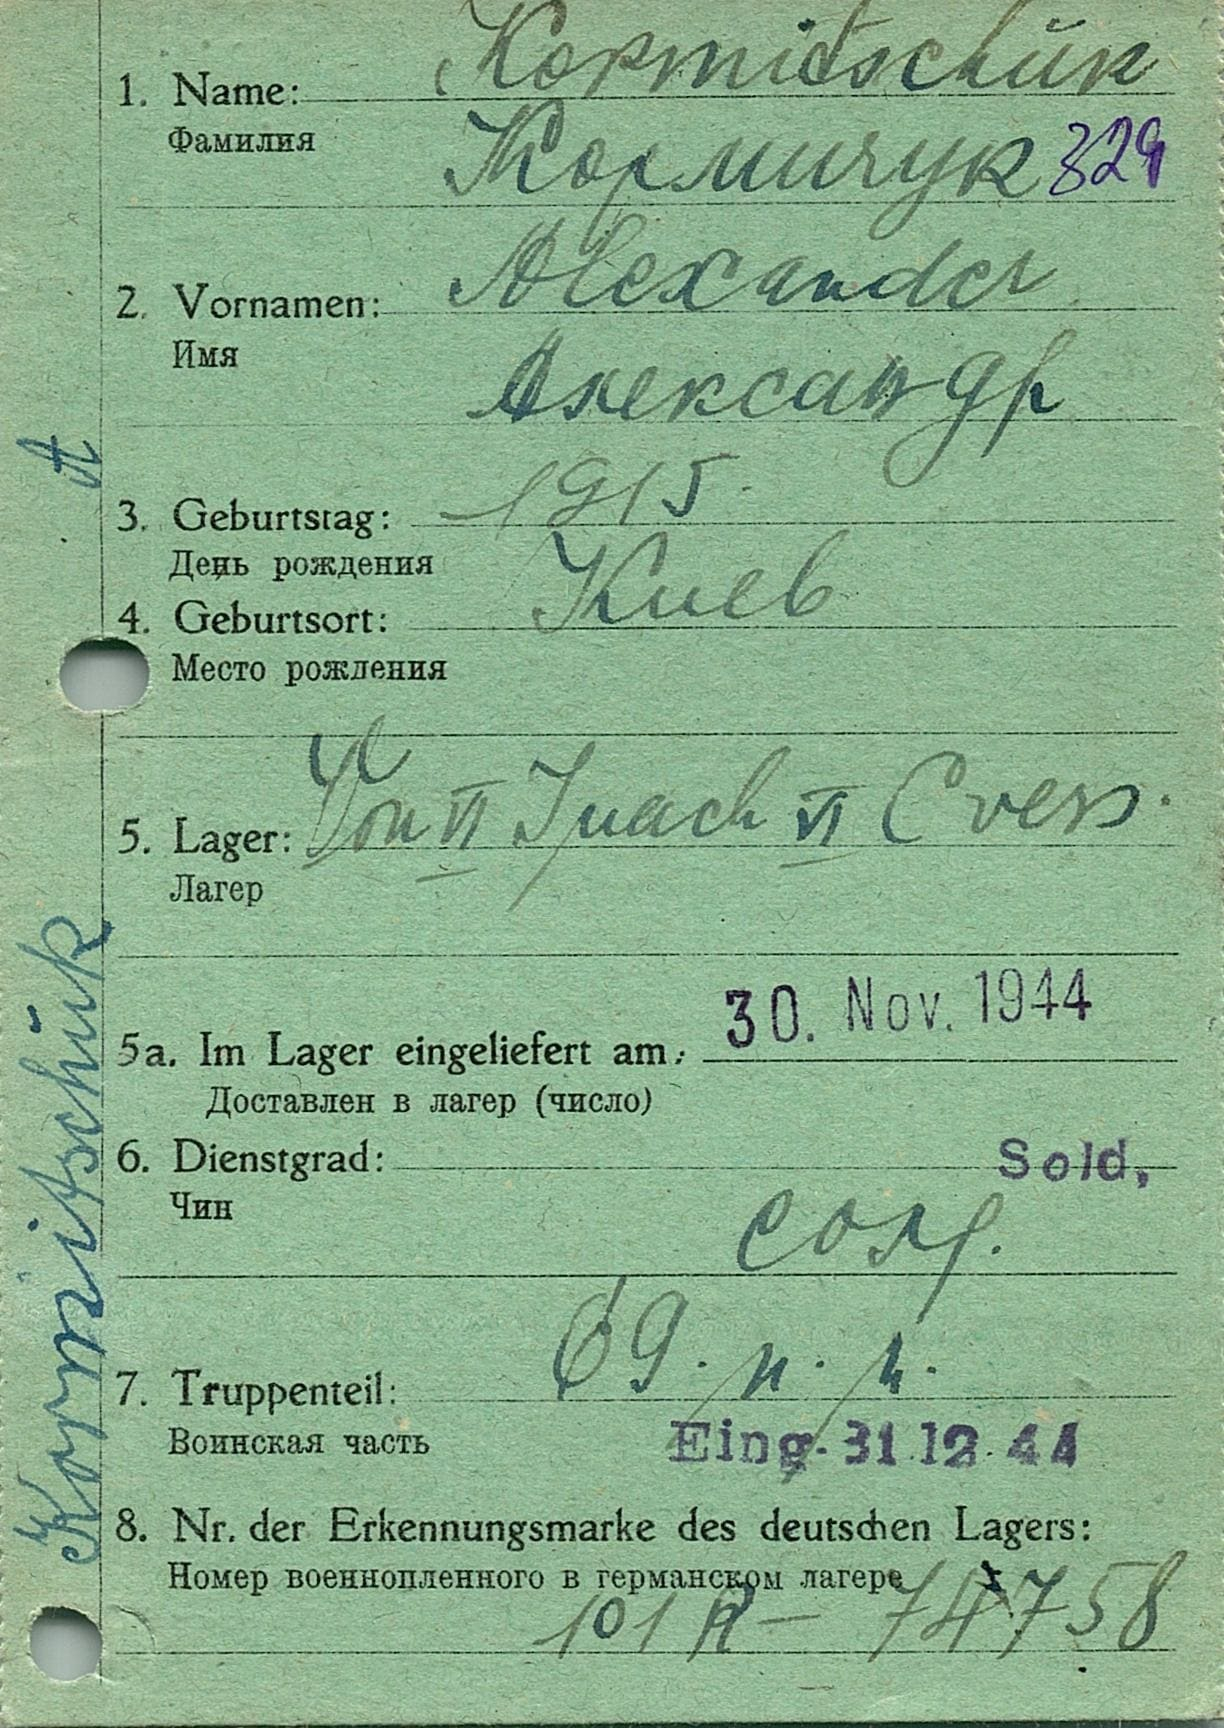 1. Name: Kormitschük
Фамилия
Кормичук 329
2. Vornamen: Alexander
Имя
Александр
A
3. Geburtstag: 1915.
День рождения
4. Geburtsort: Киев
Место рождения
5. Lager: Von VI J nach VI C vers.
Лагер
Kormitschük
5a. Im Lager eingeliefert am: 30. Nov. 1944
Доставлен в лагер (число)
6. Dienstgrad: Sold.
Чин
солд.
7. Truppenteil: 69. п. п.
Воинская часть
Eing. 31.12.44
8. Nr. der Erkennungsmarke des deutschen Lagers:
Номер военнопленного в германском лагере